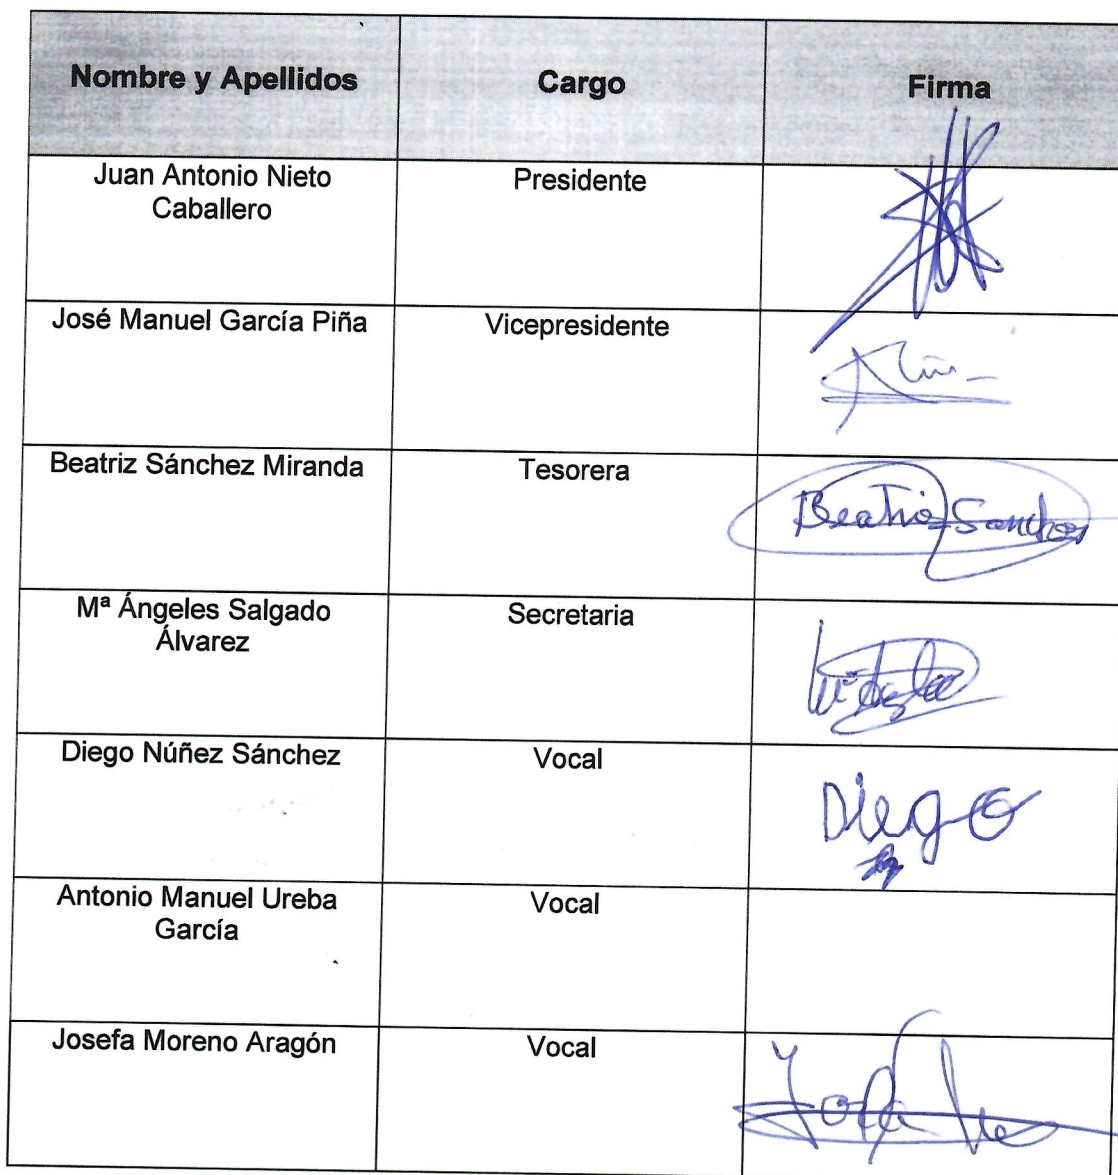 Nombre y Apellidos Cargo Firma
Juan Antonio Nieto Presidente
Caballero
José Manuel García Piña Vicepresidente
Beatriz Sánchez Miranda Tesorera
Beatriz Sanchez
Mª Ángeles Salgado Secretaria
Álvarez
Diego Núñez Sánchez Vocal
Diego
Antonio Manuel Ureba Vocal
García
Josefa Moreno Aragón Vocal